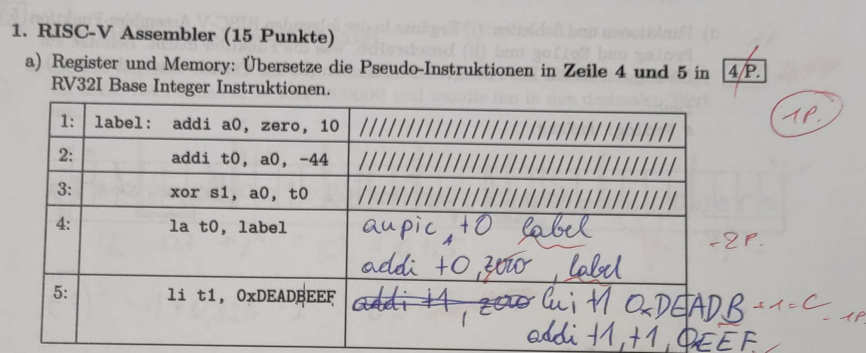 1. RISC-V Assembler (15 Punkte)
a) Register und Memory: Übersetze die Pseudo-Instruktionen in Zeile 4 und 5 in 4 P.
RV32I Base Integer Instruktionen.
1P.
1: label: addi a0, zero, 10 ///////////////////////////////////
2: addi t0, a0, -44 ///////////////////////////////////
3: xor s1, a0, t0 ///////////////////////////////////
4: la t0, label aupic, t0 label
-2P.
addi t0, zero, label
5: li t1, 0xDEADBEEF addi t1, zero lui t1 0xDEADB +1=C -1P.
addi t1, t1, 0xEEF